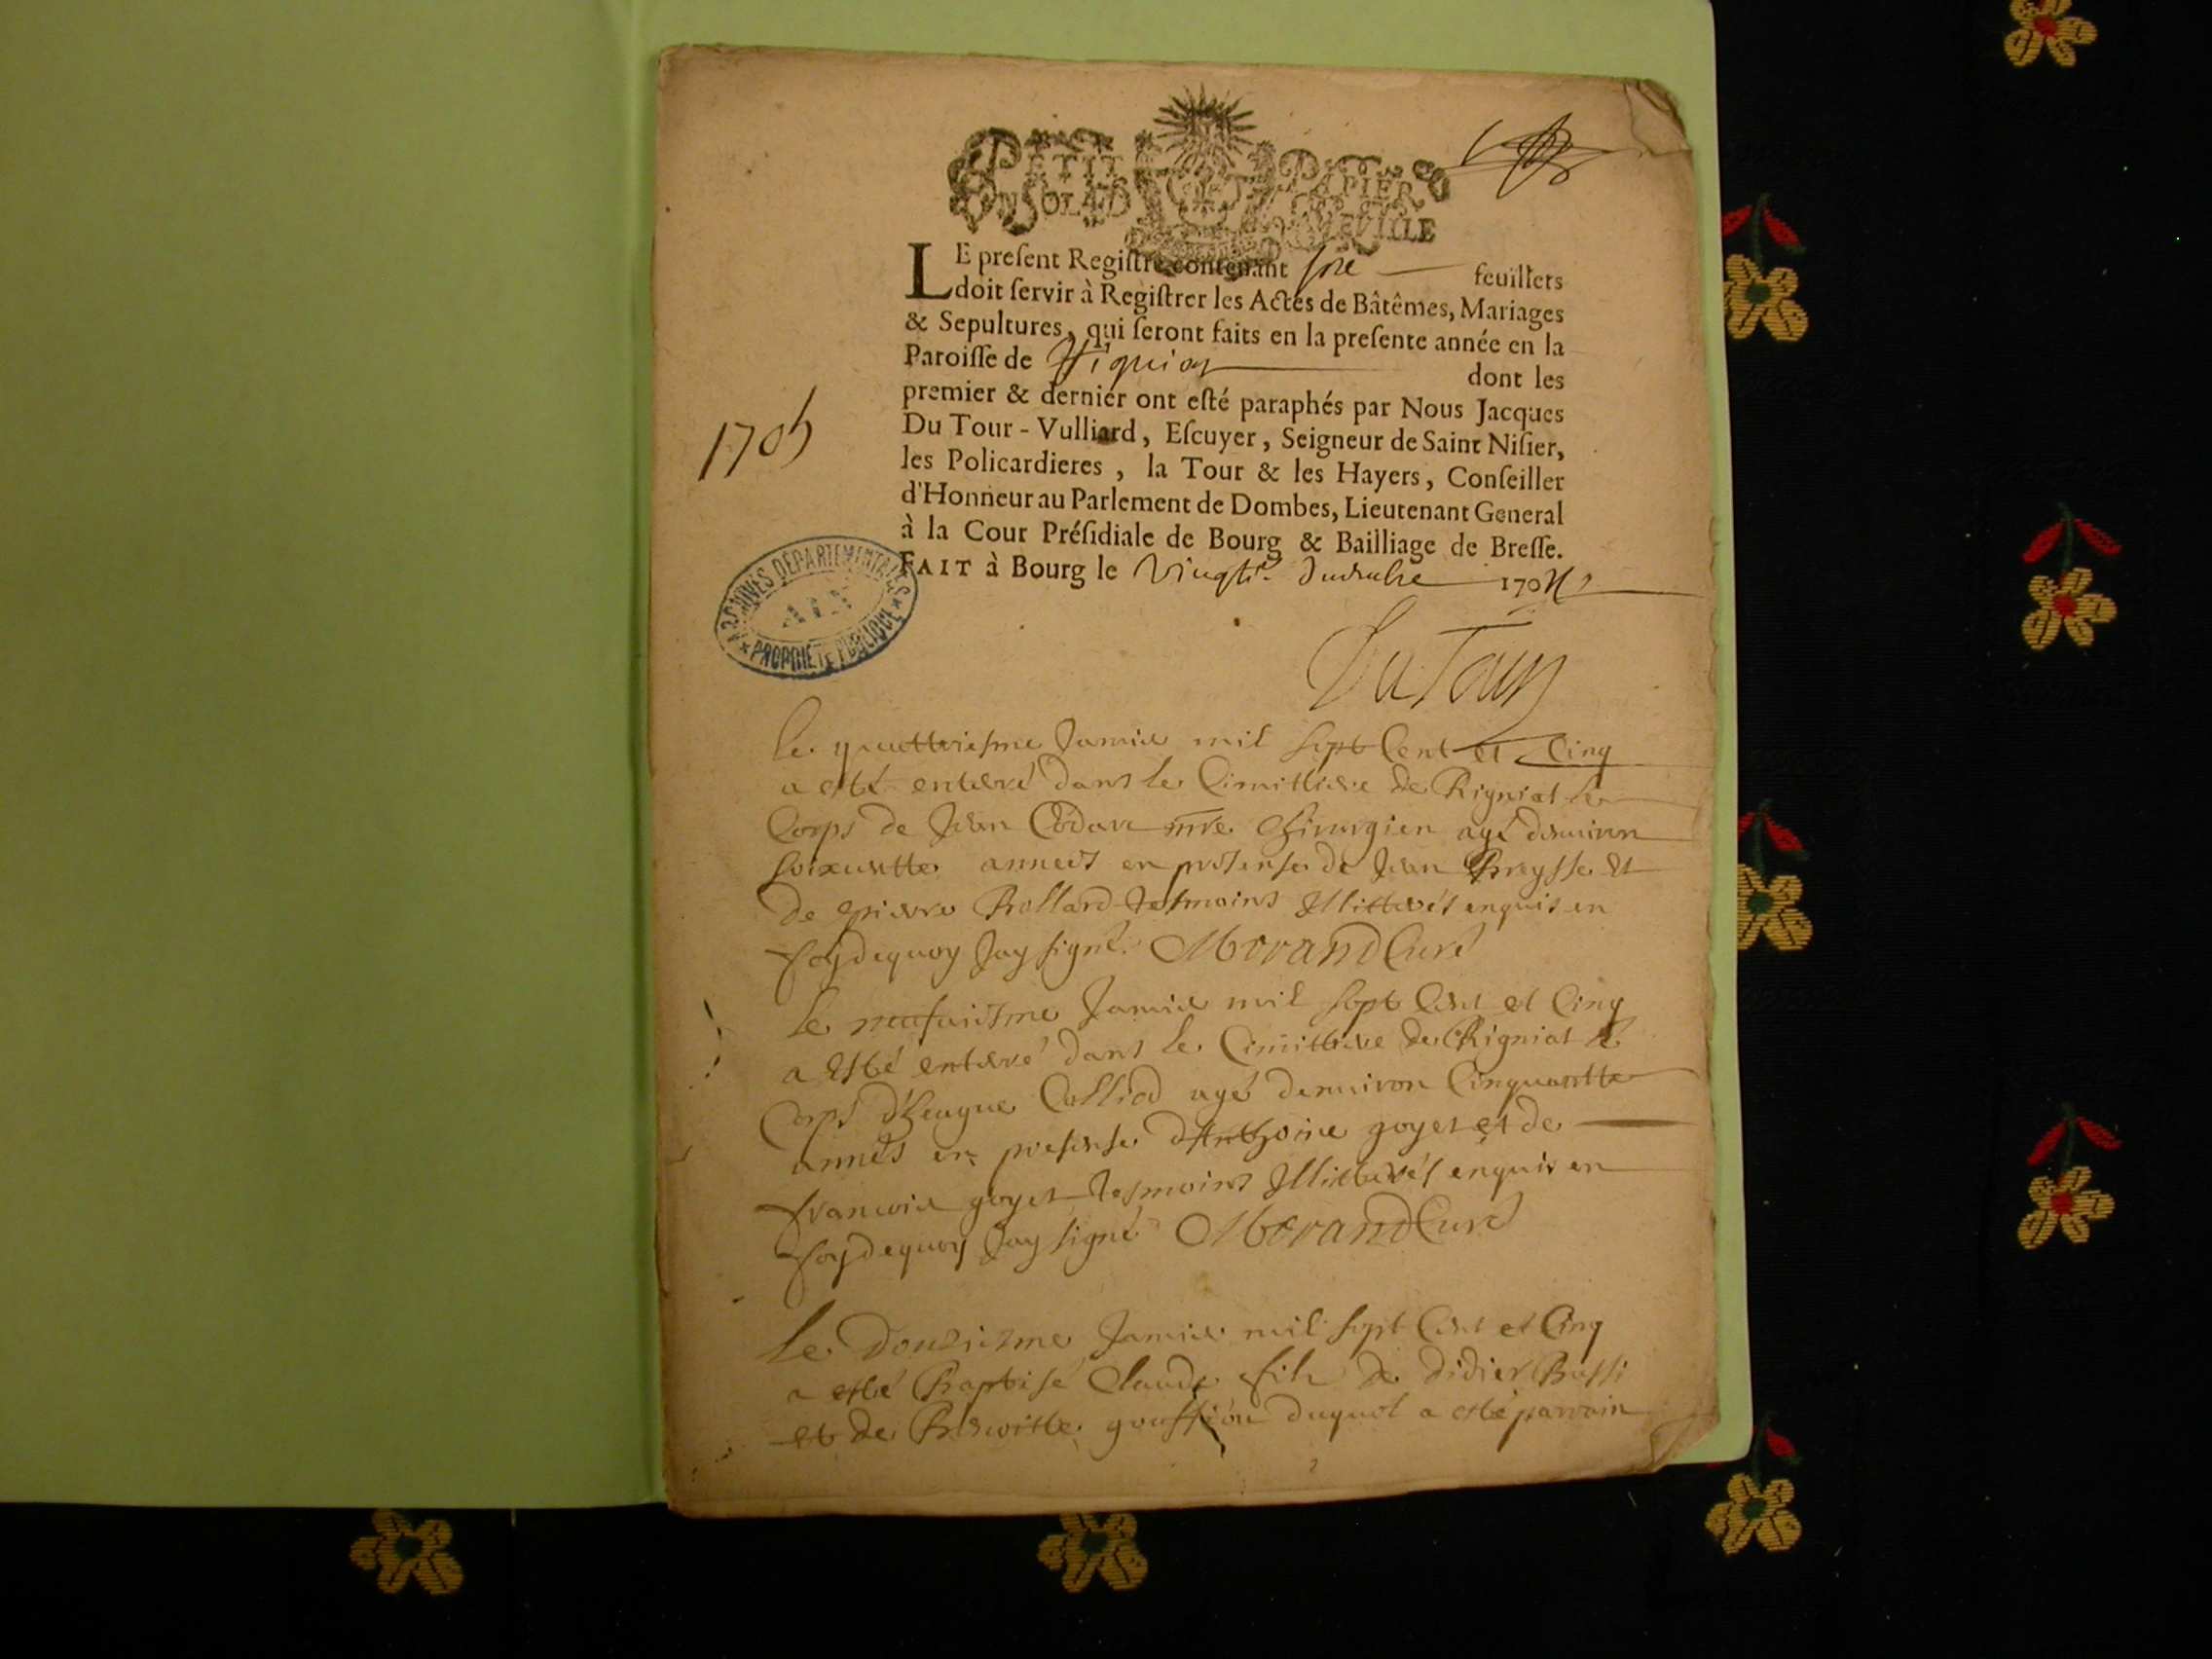 PETIT PAPIER
UN SOL
LE preſent Regiſtre contenant feuillets
doit ſervir à Regiſtrer les Actes de Bâtêmes, Mariages
& Sepultures, qui ſeront faits en la preſente année en la
Paroiſſe de dont les
premier & dernier ont eſté paraphés par Nous Jacques
Du Tour - Vulliard, Eſcuyer, Seigneur de Saint Niſier,
les Policardieres, la Tour & les Hayers, Conſeiller
d'Honneur au Parlement de Dombes, Lieutenant General
à la Cour Préſidiale de Bourg & Bailliage de Breſſe.
FAIT à Bourg le 170
1705
ARCHIVES DÉPARTEMENTALES
AIN
PROPRIÉTÉ PUBLIQUE
DuTour
Le quattriesme Janvier mil sept Cent et Cinq
a esté enterré dans le Cimittiere de Rigniat le
Corps de Jean mre chirurgien agé denviron
soixantte annees en presense de Jean et
de pierre Rollard tesmoins Illitterés enquis en
foy dequoy Jay signé. Morand Curé
Le neufviesme Janvier mil sept Cent et Cinq
a Esté enterré dans le Cimittiere de Rigniat le
Corps d'heugue Colliod agé denviron Cinquantte
annés en presense dAnthoine goyet et de
francois goyet tesmoins Illitterés enquis en
foy dequoy Jay signé Morand Curé
Le Douziesme Janvier mil sept Cent et Cinq
a esté Baptisé Claude fils de didier
et de duquel a esté parrain